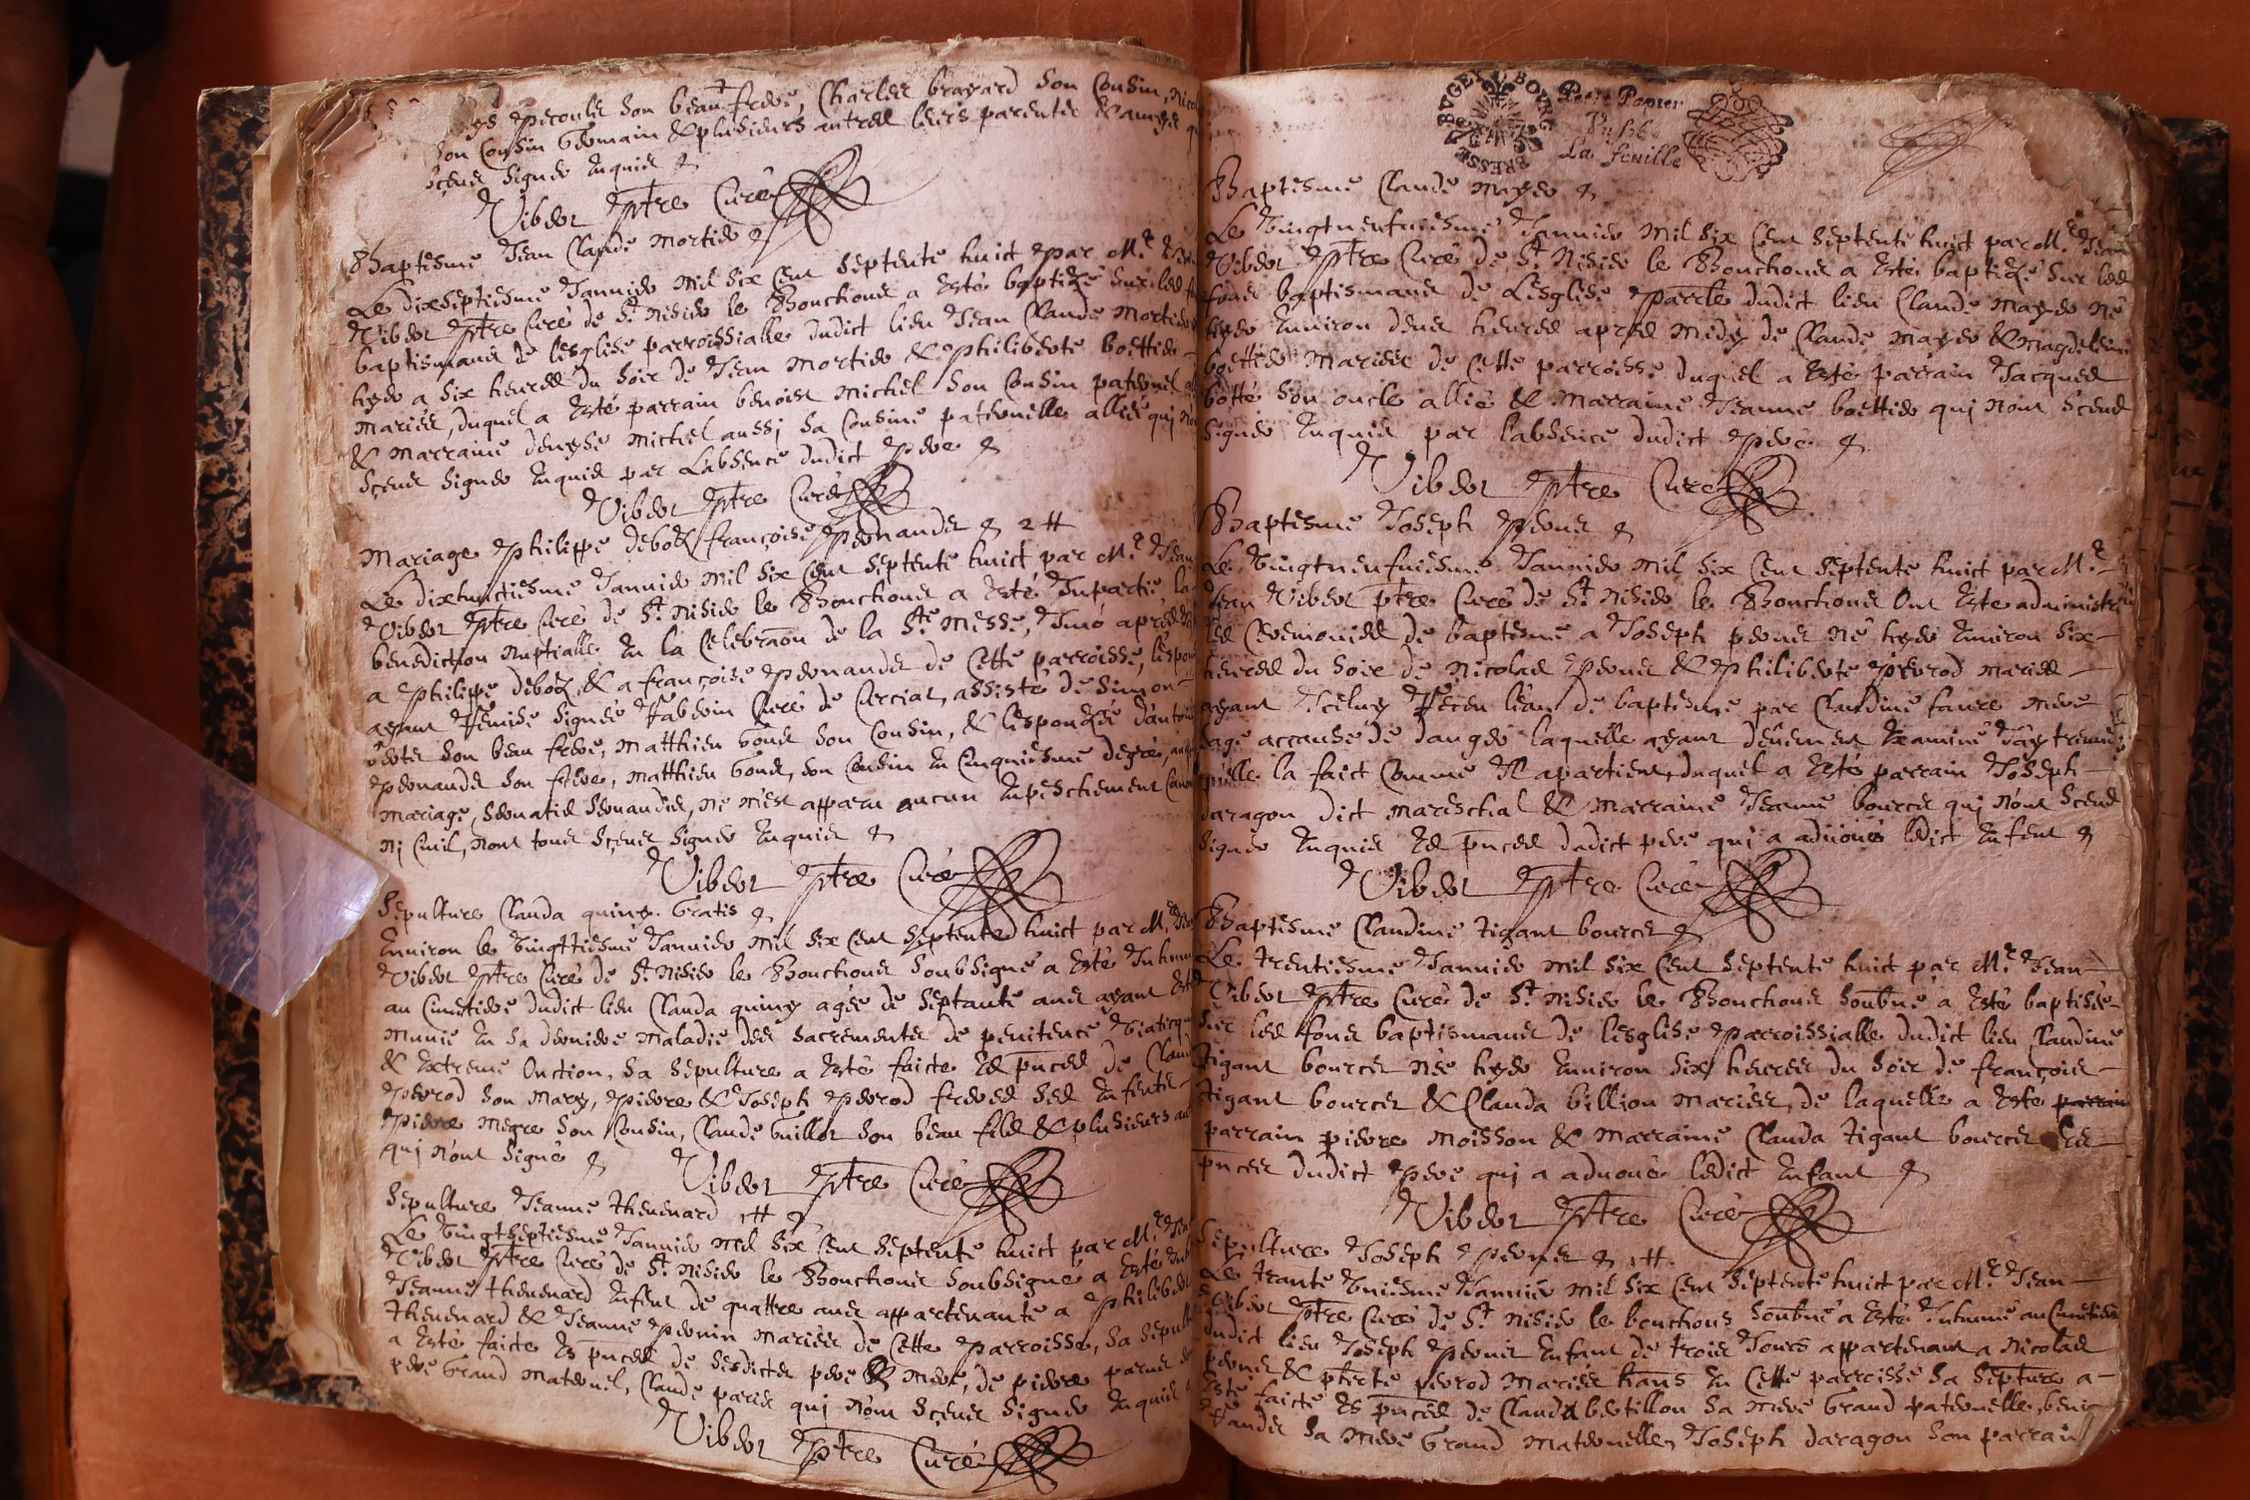 pecoult son beau frere, Charles brayard son Cousin,
son Cousin Germain & plusieurs autres leurs parentes & amys
sçeus signer Enquis
Vibert ptre Curé
Baptesme Jean Claude mortier
Le dixseptiesme Janvier mil six cent septente huict par Mre
Vibert ptre Curé de St nisier le Bouchoux a Esté baptizé sur les
baptismaux de lesglise parroissialle dudict lieu Jean Claude mortier
hyer a six heures du soir de Jean mortier & philiberte boettier
mariés, duquel a Esté parrain benoist michel son Cousin paternel
& marraine denyse michel aussj sa Cousine paternelle alliés quj
sçeus signer Enquis par L'absence dudict pere
Vibert ptre Curé
Mariage philippe deboz françoise pernander 2 tt
Le dixhuictiesme Janvier mil six cent septente huict par Mre Jean
Vibert ptre Curé de St nisier le Bouchoux a Esté Inpartie la
benediction nuptialle En la Celebraon de la Ste Messe, Juré apres
a philippe deboz, & a françoise pernander de cette parroisse, l'espoux
ayant Remise signée Fabvin Curé de Curciat, assisté de simon
son beau frere, Matthieu Gondt son Cousin, & l'esponzée d'antoine
pernander son frere, Matthieu Gondt, son Cousin En Cinquiesme degré,
mariage, servatis servandis, ne m'est apparu aucun Enpeschement
nj Civil, nont tous sçeus signer Enquis
Vibert ptre Curé
Sepulture Clauda quiny. Gratis
Environ le vingttiesme Janvier mil six cent septente huict par Mre
Vibert ptre Curé de St nisier le Bouchoux soubsigné a Esté Inhumée
au Cimetiere dudict lieu Clauda quiny agée de septante ans ayant Esté
munie En sa derniere maladie des sacrementes de penitence viatique
& Extreme Onction, sa sepulture a Esté faicte Es pnces de Claude
perrod son mary, pierre & Joseph perrod freres ses Enfentes
pierre megre son Cousin, Claude Guillot son beau fils & plusieurs
quj n'ont signé
Vibert ptre Curé
Sepulture Jeanne thevenard 1 tt
Le vingtseptiesme Janvier mil six cent septente huict par Mre
Vibert ptre Curé de St nisier le Bouchoux soubsigné a Esté
Jeanne thevenard Enfent de quattre ans appartenante a philibert
thevenard & Jeanne pernin mariés de Cette parroisse, sa sepulture
a Esté faicte Es pnces de sesdictes pere & mere, de pierre
pere Grand maternel, Claude quj n'ont sçeus signer Enquis
Vibert ptre Curé
BVGEY BOVRG BRESSE
Petit Papier
La feuille
Baptesme Claude mayer
Le vingtneufuiesme Janvier mil six cent septente huict par Mre Jean
Vibert ptre Curé de St nisier le Bouchoux a Esté baptizé sur les
fons baptismaux de Lesglise parrle dudict lieu Claude mayer né
hyer Environ deux heures apres midy de Claude mayer & magdeleine
boettier mariés de Cette parroisse duquel a Esté parrain Jacques
botté son oncle allié & marraine Jeanne boettier quj n'ont sceus
signer Enquis par labsence dudict pere
Vibert ptre Curé
Baptesme Joseph perner
Le vingtneufuiesme Janvier mil six cent septente huict par Mre
Jean Vibert ptre Curé de St nisier le Bouchoux Ont Esté administré
les Ceremonies de baptesme a Joseph perner né hyer Environ six
heures du soir de nicolas perner & philiberte perrod mariés
ayant Iceluy Receu leau de baptesme par Claudine faure mere
sage accause de danger laquelle ayant deüement Examiné
quelle la faict Comme Il apartient, duquel a Esté parrain Joseph
daragon dict mareschal & marraine Jeanne bourcet quj n'ont sceus
signer Enquis Es pnces dudict pere quj a advoué ledict Enfent
Vibert ptre Curé
Baptesme Claudine tigant bourcet
Le trentiesme Janvier mil six cent septente huict par Mre Jean
Vibert ptre Curé de St nisier le Bouchoux soubné a Esté baptisée
sur les fons baptismaux de lesglise parroissialle dudict lieu Claudine
tigant bourcet née hyer Environ six heures du soir de françois
tigant bourcet & Clauda billion mariés, de laquelle a Esté parrain
parrain pierre moisson & marraine Clauda tigant bourcet Es
pnces dudict pere quj a advoué ledict Enfant
Vibert ptre Curé
Sepulture Joseph perner 1 tt.
Le trante vniesme Janvier mil six cent septente huict par Mre Jean
Vibert ptre Curé de St nisier le bouchoux soubné a Esté Inhumé au Cimetiere
dudict lieu Joseph perner Enfant de trois Jours appartenant a nicolas
perner & pherte perrod mariés hans En Cette parroisse sa septure a
Esté faicte Es pnces de Clauda bertillon sa mere Grand paternelle,
sa mere Grand maternelle, Joseph daragon son parrain